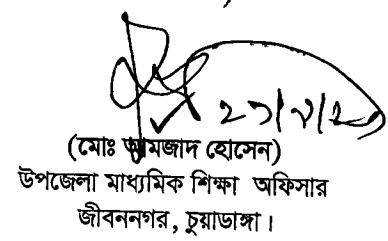 (মোঃ আমজাদ হোসেন)
উপজেলা মাধ্যমিক শিক্ষা অফিসার
জীবননগর, চুয়াডাঙ্গা।